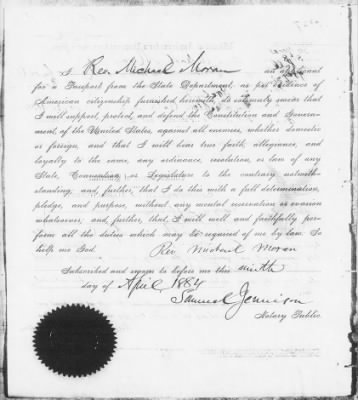 I Rev. Michael Moran an applicant
for a Passport from the State Department, as per evidence of
American citizenship furnished herewith, do solemnly swear that
I will support, protect, and defend the Constitution and Govern-
ment, of the United States, against all enemies, whether domestic
or foreign, and that I will bear true faith, allegiance, and
loyalty to the same, any ordinance, resolution or law of any
State, Convention, or Legislature to the contrary notwith-
standing; and, further, that I do this with a full determination,
pledge, and purpose, without any mental reservation or evasion
whatsoever, and, further, that I will well and faithfully per-
form all the duties which may be required of me by law. So
help me God.
Rev Michael Moran
Subscribed and sworn to before me this ninth
day of April 1884
Samuel Jennison
Notary Public.